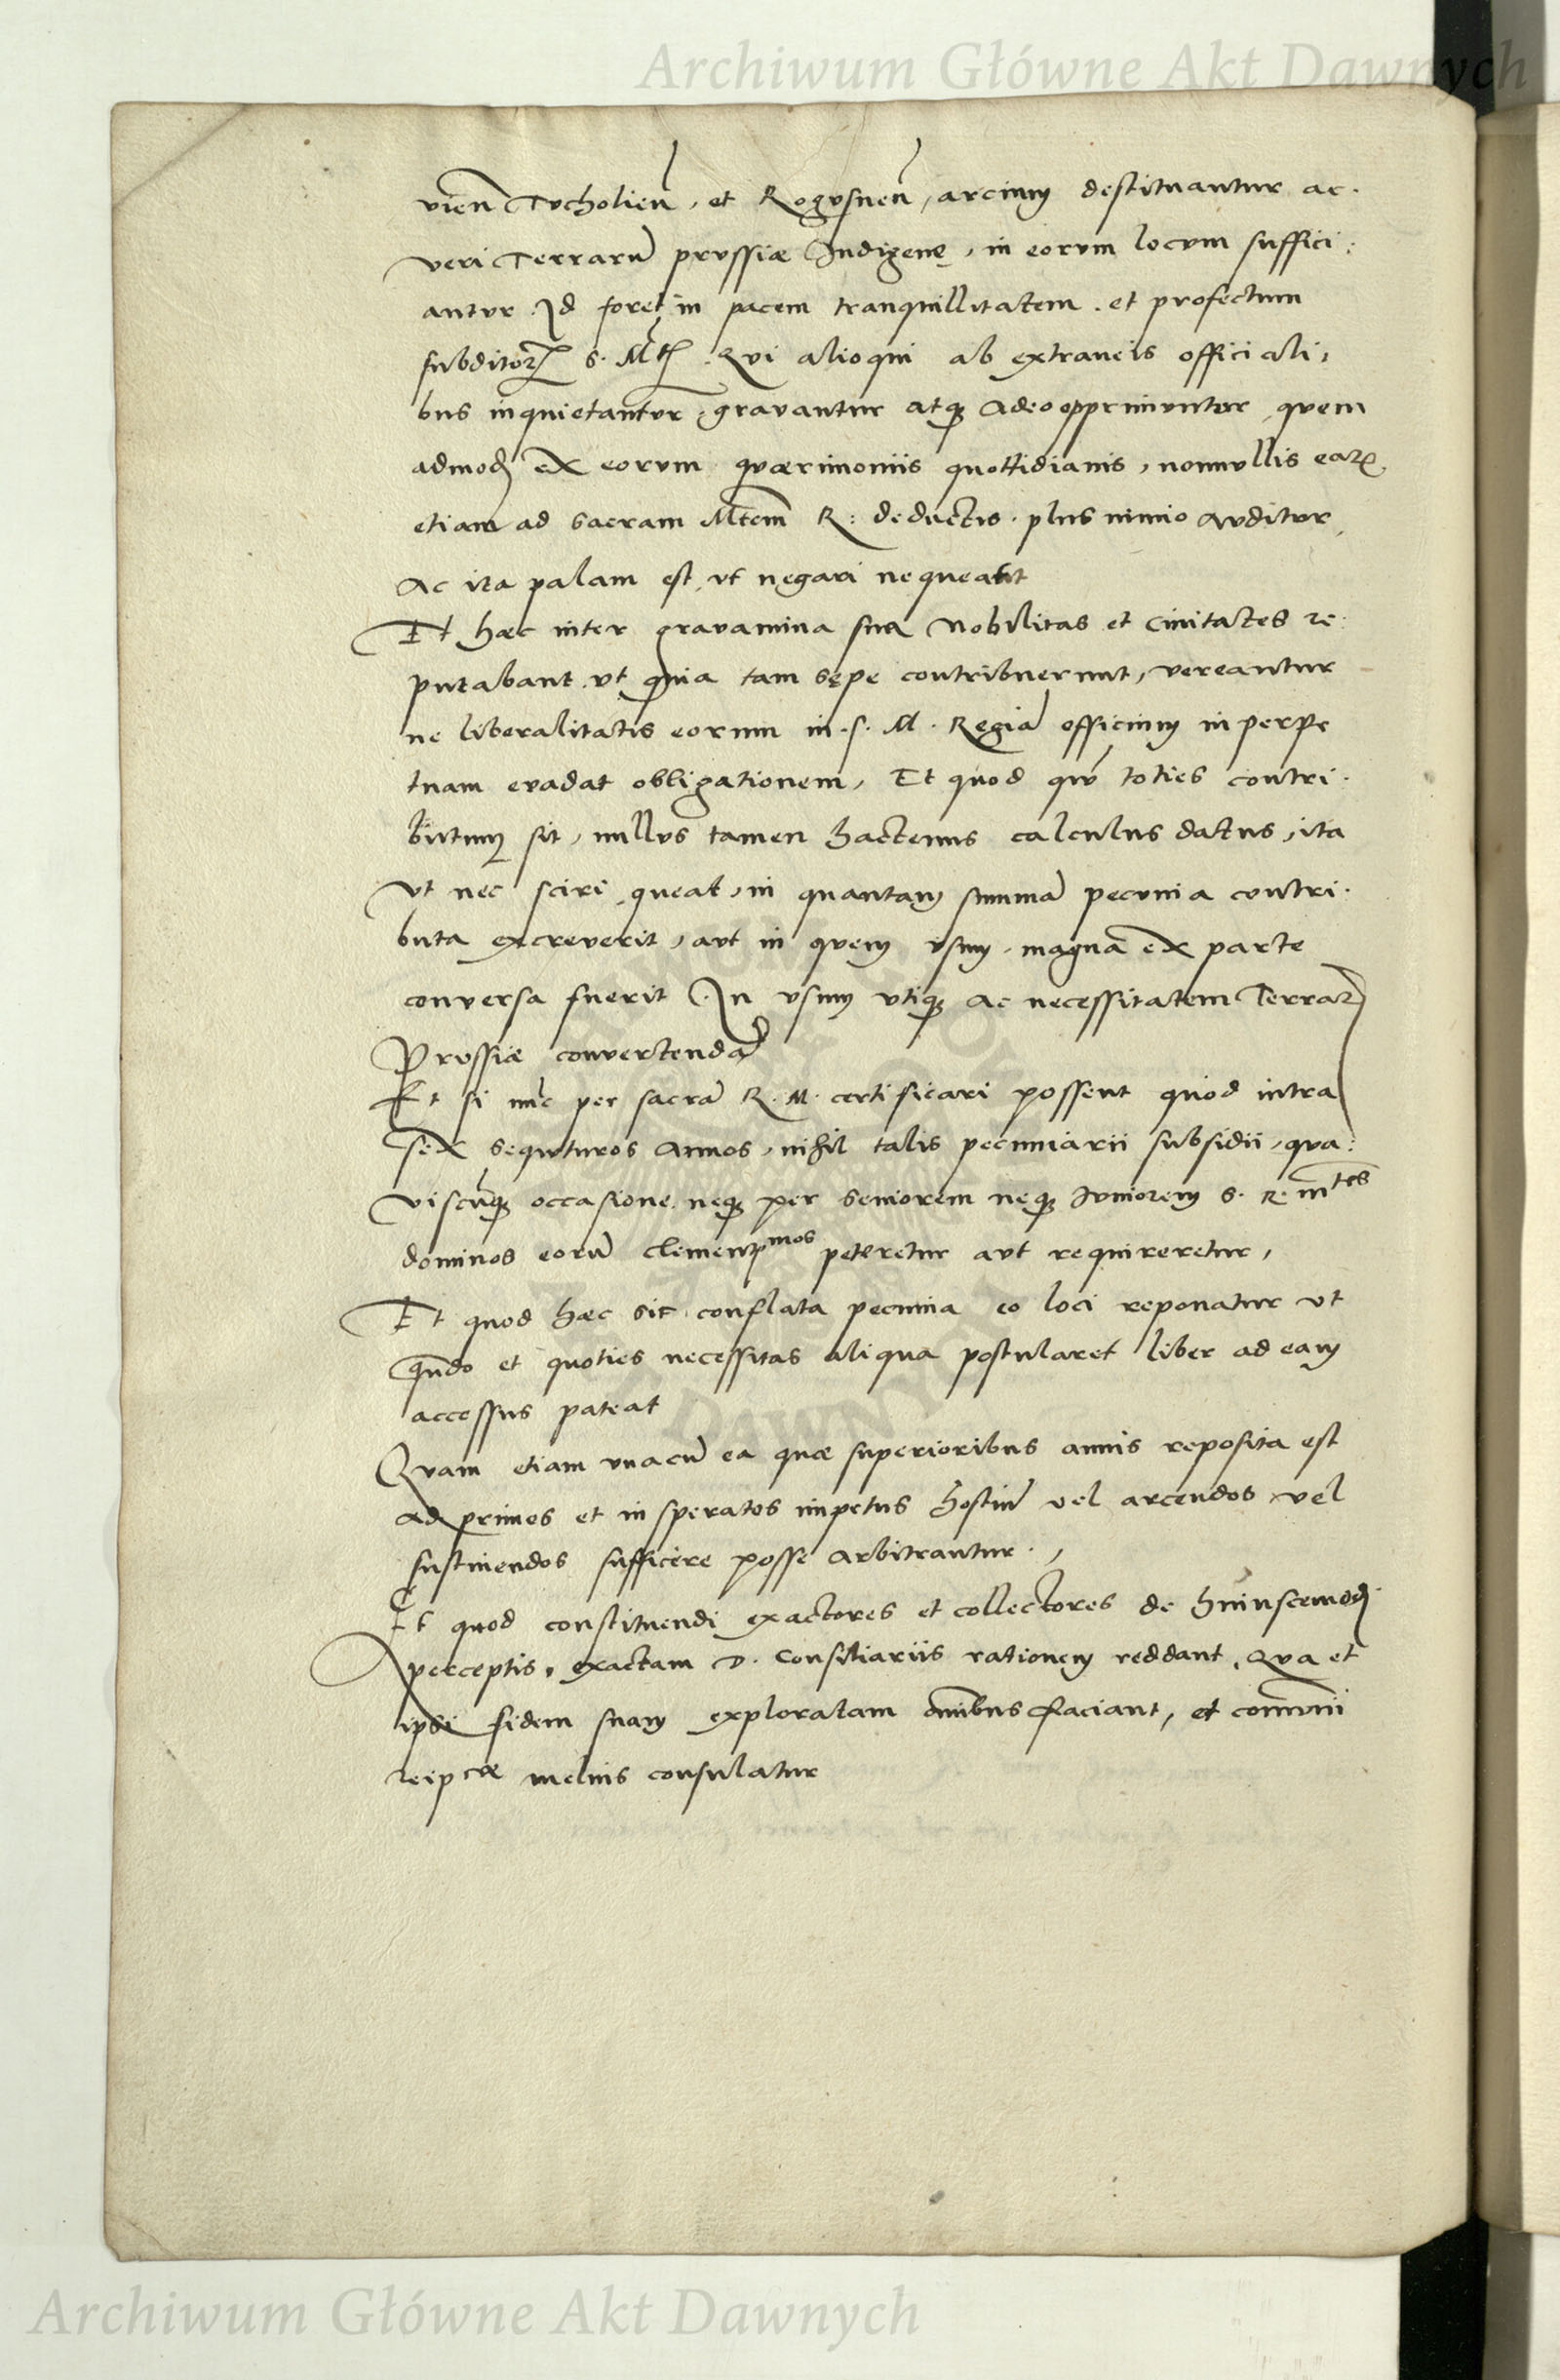 Archiwum Główne Akt Dawnych
vien Tvcholien, et Rogvsnen, arcium destituantur ac.
veri Terrarū prvssiæ Indigenę, in eorvm locvm suffici:
antvr Id foret in pacem tranquillitatem. et profectum
subditorꝝ S. Mtꝭ. Qvi alioqui ab extraneis officiali,
bus inquietantvr gravantur atqꝫ adeo opprimvntvr qvem
admodꝫ ex eorvm qværimoniis quottidianis, nonnvllis earꝝ
etiam ad Sacram Mtem R: deductis. plus nimio avditvr
Ac ita palam est vt negari nequeant
Et hæc inter gravamina sua Nobilitas et Civitates re:
putabant vt quia tam sępe contribuerunt, vereantur
ne liberalitatis eorum in. S. M. Regiā officium in perpe
tuam evadat obligationem, Et quod qvū toties contri.
butum sit, nullvs tamen hactenus calculus datus, ita
vt nec sciri queat, in quantam summā pecvnia contri.
buta excreverit, avt in qvem vsum. magna ex parte
conversa fuerit. In vsum vtiqꝫ ac necessitatem Terrarꝝ
Prvssiæ convertendā
Et si nūc per sacrā R. M. certificari possent quod intra
sex sequturos annos, nihil talis pecuniarii subsidii, qva:
viscūqꝫ occasione neqꝫ per seniorem neqꝫ Ivniorem S. R. mtes
dominos eorū clementꝑmos peteretur avt requireretur,
Et quod hæc sic conflata pecunia eo loci reponatur vt
qn̄do et quoties necessitas aliqua postularet liber ad eam
accessus pateat
Qvam etiam vnacū ea quæ superioribus annis reposita est
ad primos et insperatos impetus hostiū vel arcendos vel
sustinendos sufficere posse arbitrantur.,
Et quod constituendi exactores et collectores de huiuscemodꝫ
perceptis, exactam D. Consiliariis rationem reddant, Qva et
ipsi fidem suam exploratam om̄ibus faciant, et com̄vni
reipcæ melius consulatur
Archiwum Główne Akt Dawnych